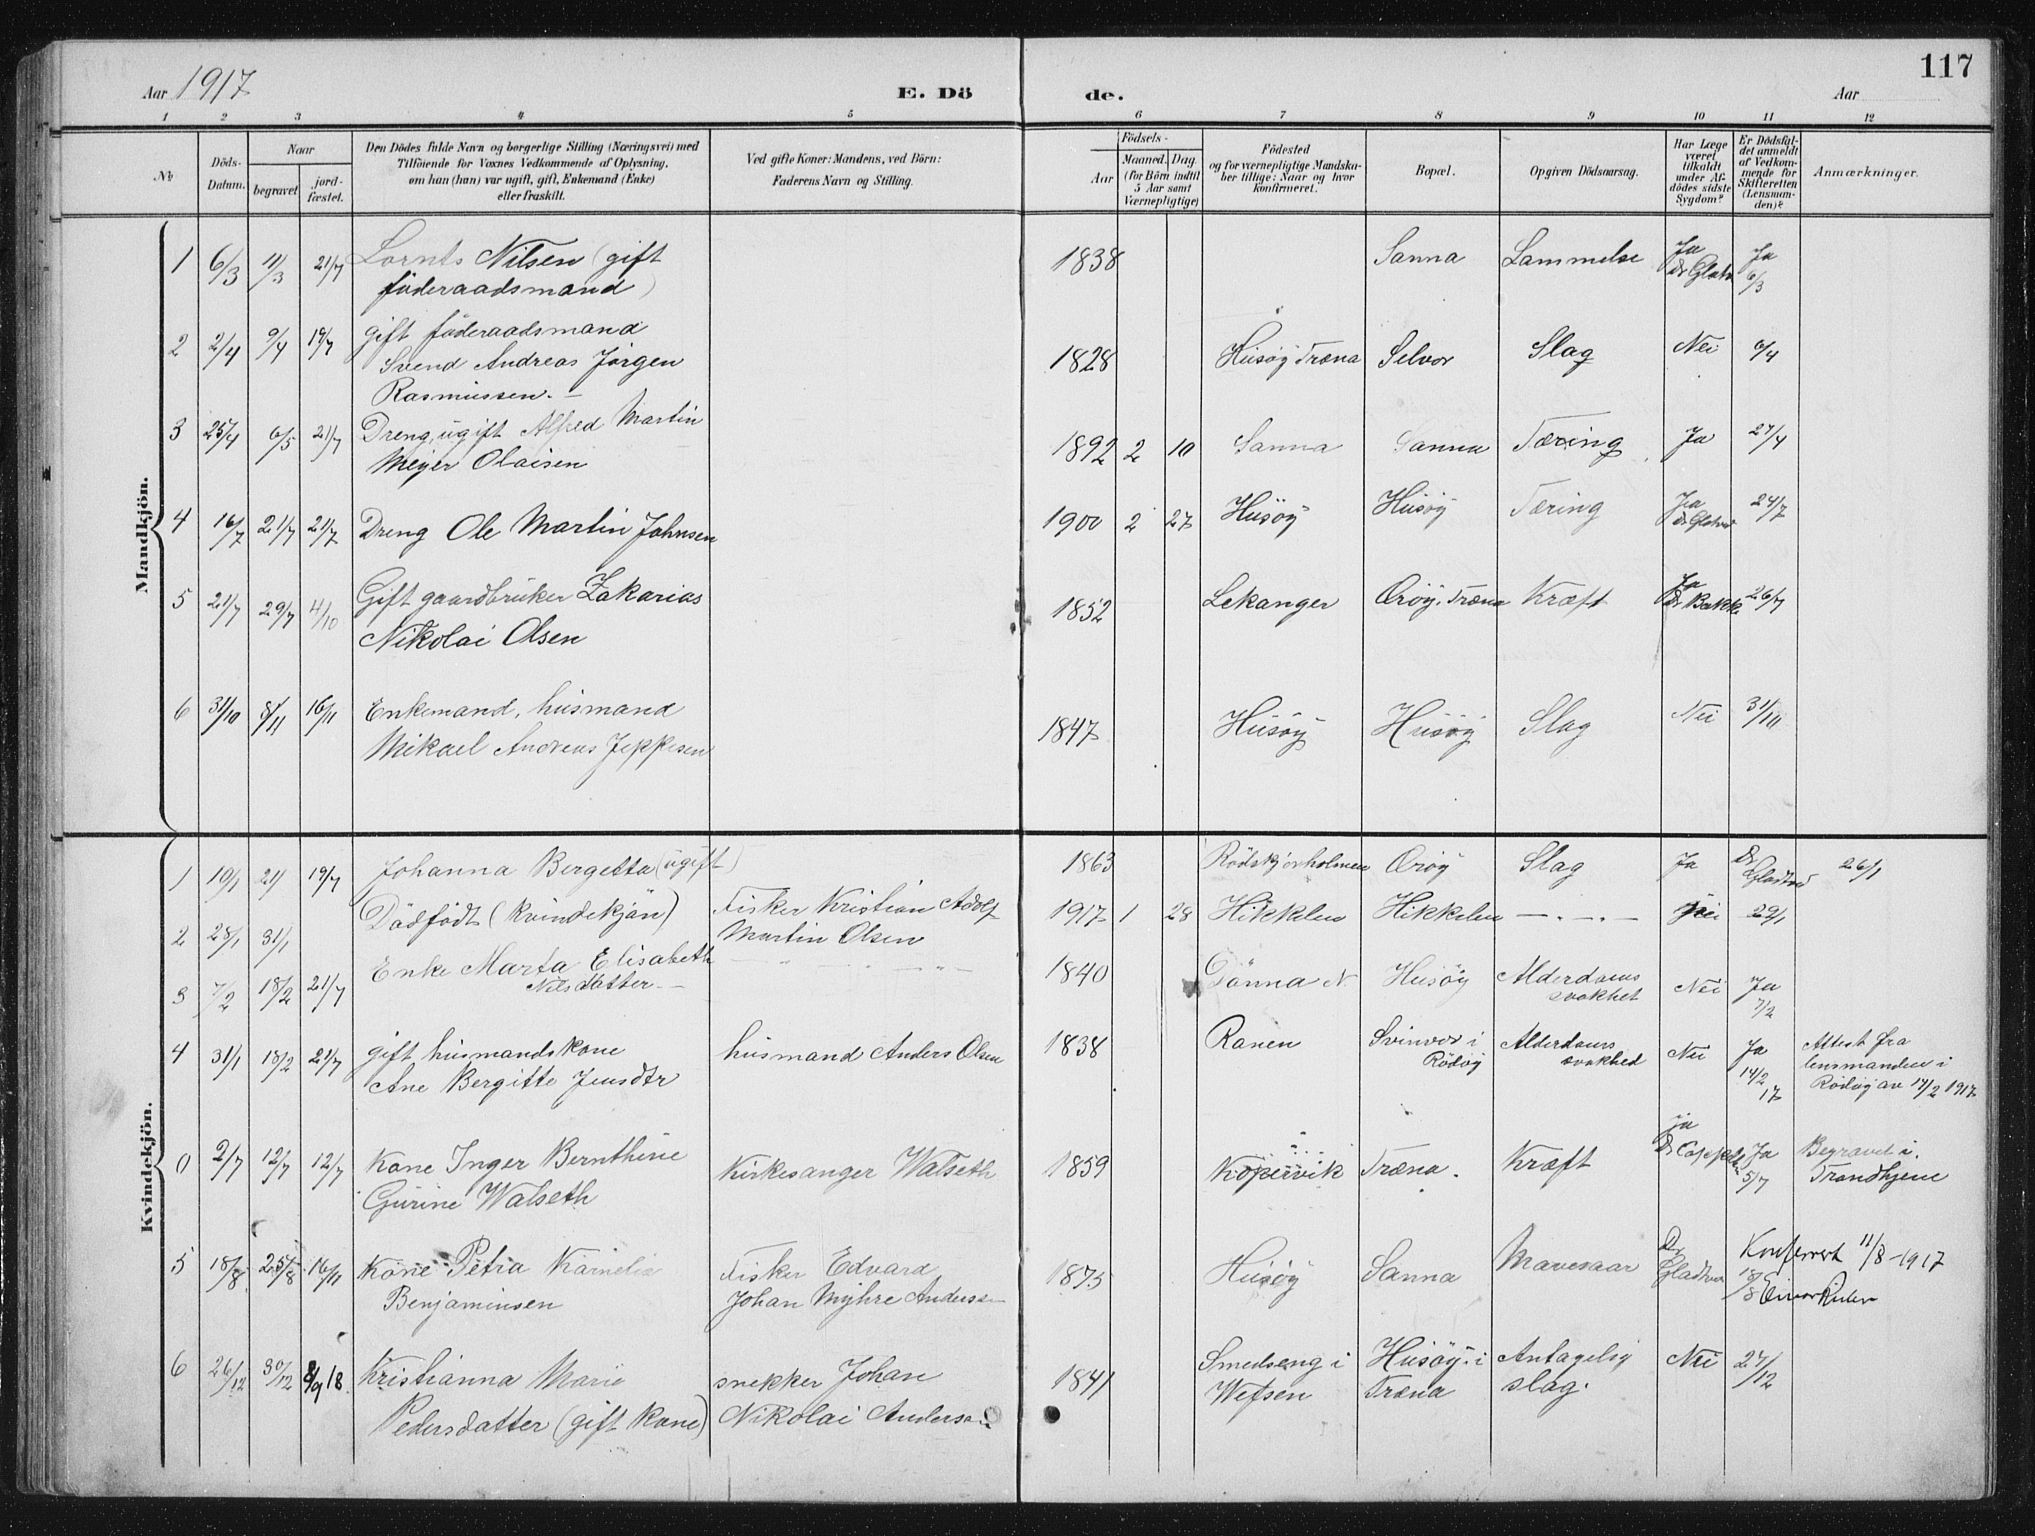 117
Aar 1917 E. Dö de. Aar
1 2 3 4 5 6 7 8 9 10 11 12
№ Döds-Datum. Naar begravet jordfæstet.
Den Dödes fulde Navn og borgerlige Stilling (Næringsvei) med
Tilföiende for Voxnes Vedkommende af Oplysning,
om han (hun) var ugift, gift, Enkemand (Enke)
eller fraskilt.
Ved gifte Koner: Mandens, ved Börn:
Faderens Navn og Stilling.
Födsels-
Aar Maaned. Dag.
(for Börn indtil
5 Aar samt
Værnepligtige)
Födested
og for værnepligtige Mandska-
ber tillige: Naar og hvor
konfirmeret.
Bopæl.
Opgiven Dödsaarsag.
Har Læge
været
tilkaldt
under Af-
dödes sidste
Sygdom?
Er Dödsfal-
det anmeldt
af Vedkom-
mende for
Skifteretten
(Lensman-
den)?
Anmærkninger.
Mandkjön.
1 6/3 11/3 21/7 Lornts Nilsen (gift 1838 Sanna Lammelse Ja Ja
föderaadsmand) 6/3
2 2/4 9/4 19/7 gift föderaadsmand
Svend Andreas Jørgen 1828 Husøy Træna Selvær Slag Nei 6/4
Rasmussen. —
3 25/4 6/5 21/7 Dreng, ugift Alfred Martin
Meyer Olaisen 1892 2 10 Sanna Sanna Tæring Ja 27/4
4 16/7 21/7 21/7 Dreng Ole Martin Johnsen 1900 2 27 Husøy Husøy Tæring Ja 24/7
5 21/7 29/7 4/10 Gift gaardbruker Zakarias
Nikolai Olsen 1852 Lekanger Ørøy. Træna Kræft Ja Dr Bakk 26/7
6 31/10 8/11 16/11 Enkemand, husmand
Mikael Andreas Jeppesen 1847 Husøy Husøy Slag Nei 31/10
Kvindekjön.
1 19/1 21/ 19/7 Johanna Bergetta (ugift) 1863 Rødskjærholmen Ørøy Slag Ja Dr 26/1
2 28/1 31/1 Dödfödt (kvindekjön) Fisker Kristian Adolf
Martin Olsen 1917 1 28 Hikkelen Hikkelen — „ — Nei 29/1
3 7/2 18/2 21/7 Enke Marta Elisabeth
Nilsdatter — 1840 Dönna N. Husøy Alderdoms
svakhet Nei Ja
7/2
4 31/1 18/2 21/7 gift husmandskone
Ane Bergitte Jensdtr husmand Anders Olsen 1838 Ranen Svinvær i
Rødøy Alderdoms
svakhed Nei Ja
14/2
17 Attest fra
lensmanden i
Rödöy av 14/2 1917
0 2/7 12/7 12/7 Kone Inger Bernthine
Gurine Walseth Kirkesanger Walseth 1859 Kopervik Træna. Kræft ja
Dr Cappelen Ja
5/7 Begravet i
Trondhjem
5 18/8 25/8 16/11 Kone Petra Kornelia
Benjaminsen Fisker Edvard
Johan Myhre Anderssen 1875 Husøy Sanna Mavesaar Dr 18/8
Konferert 11/8-1917
6 26/12 30/12 8/9 18. Kristianna Marie
Pedersdatter (gift kone) snekker Johan
Nikolai Anderssen 1841 Smedseng i
Wefsen Husøy i
Træna Antagelig
slag. Nei 27/12